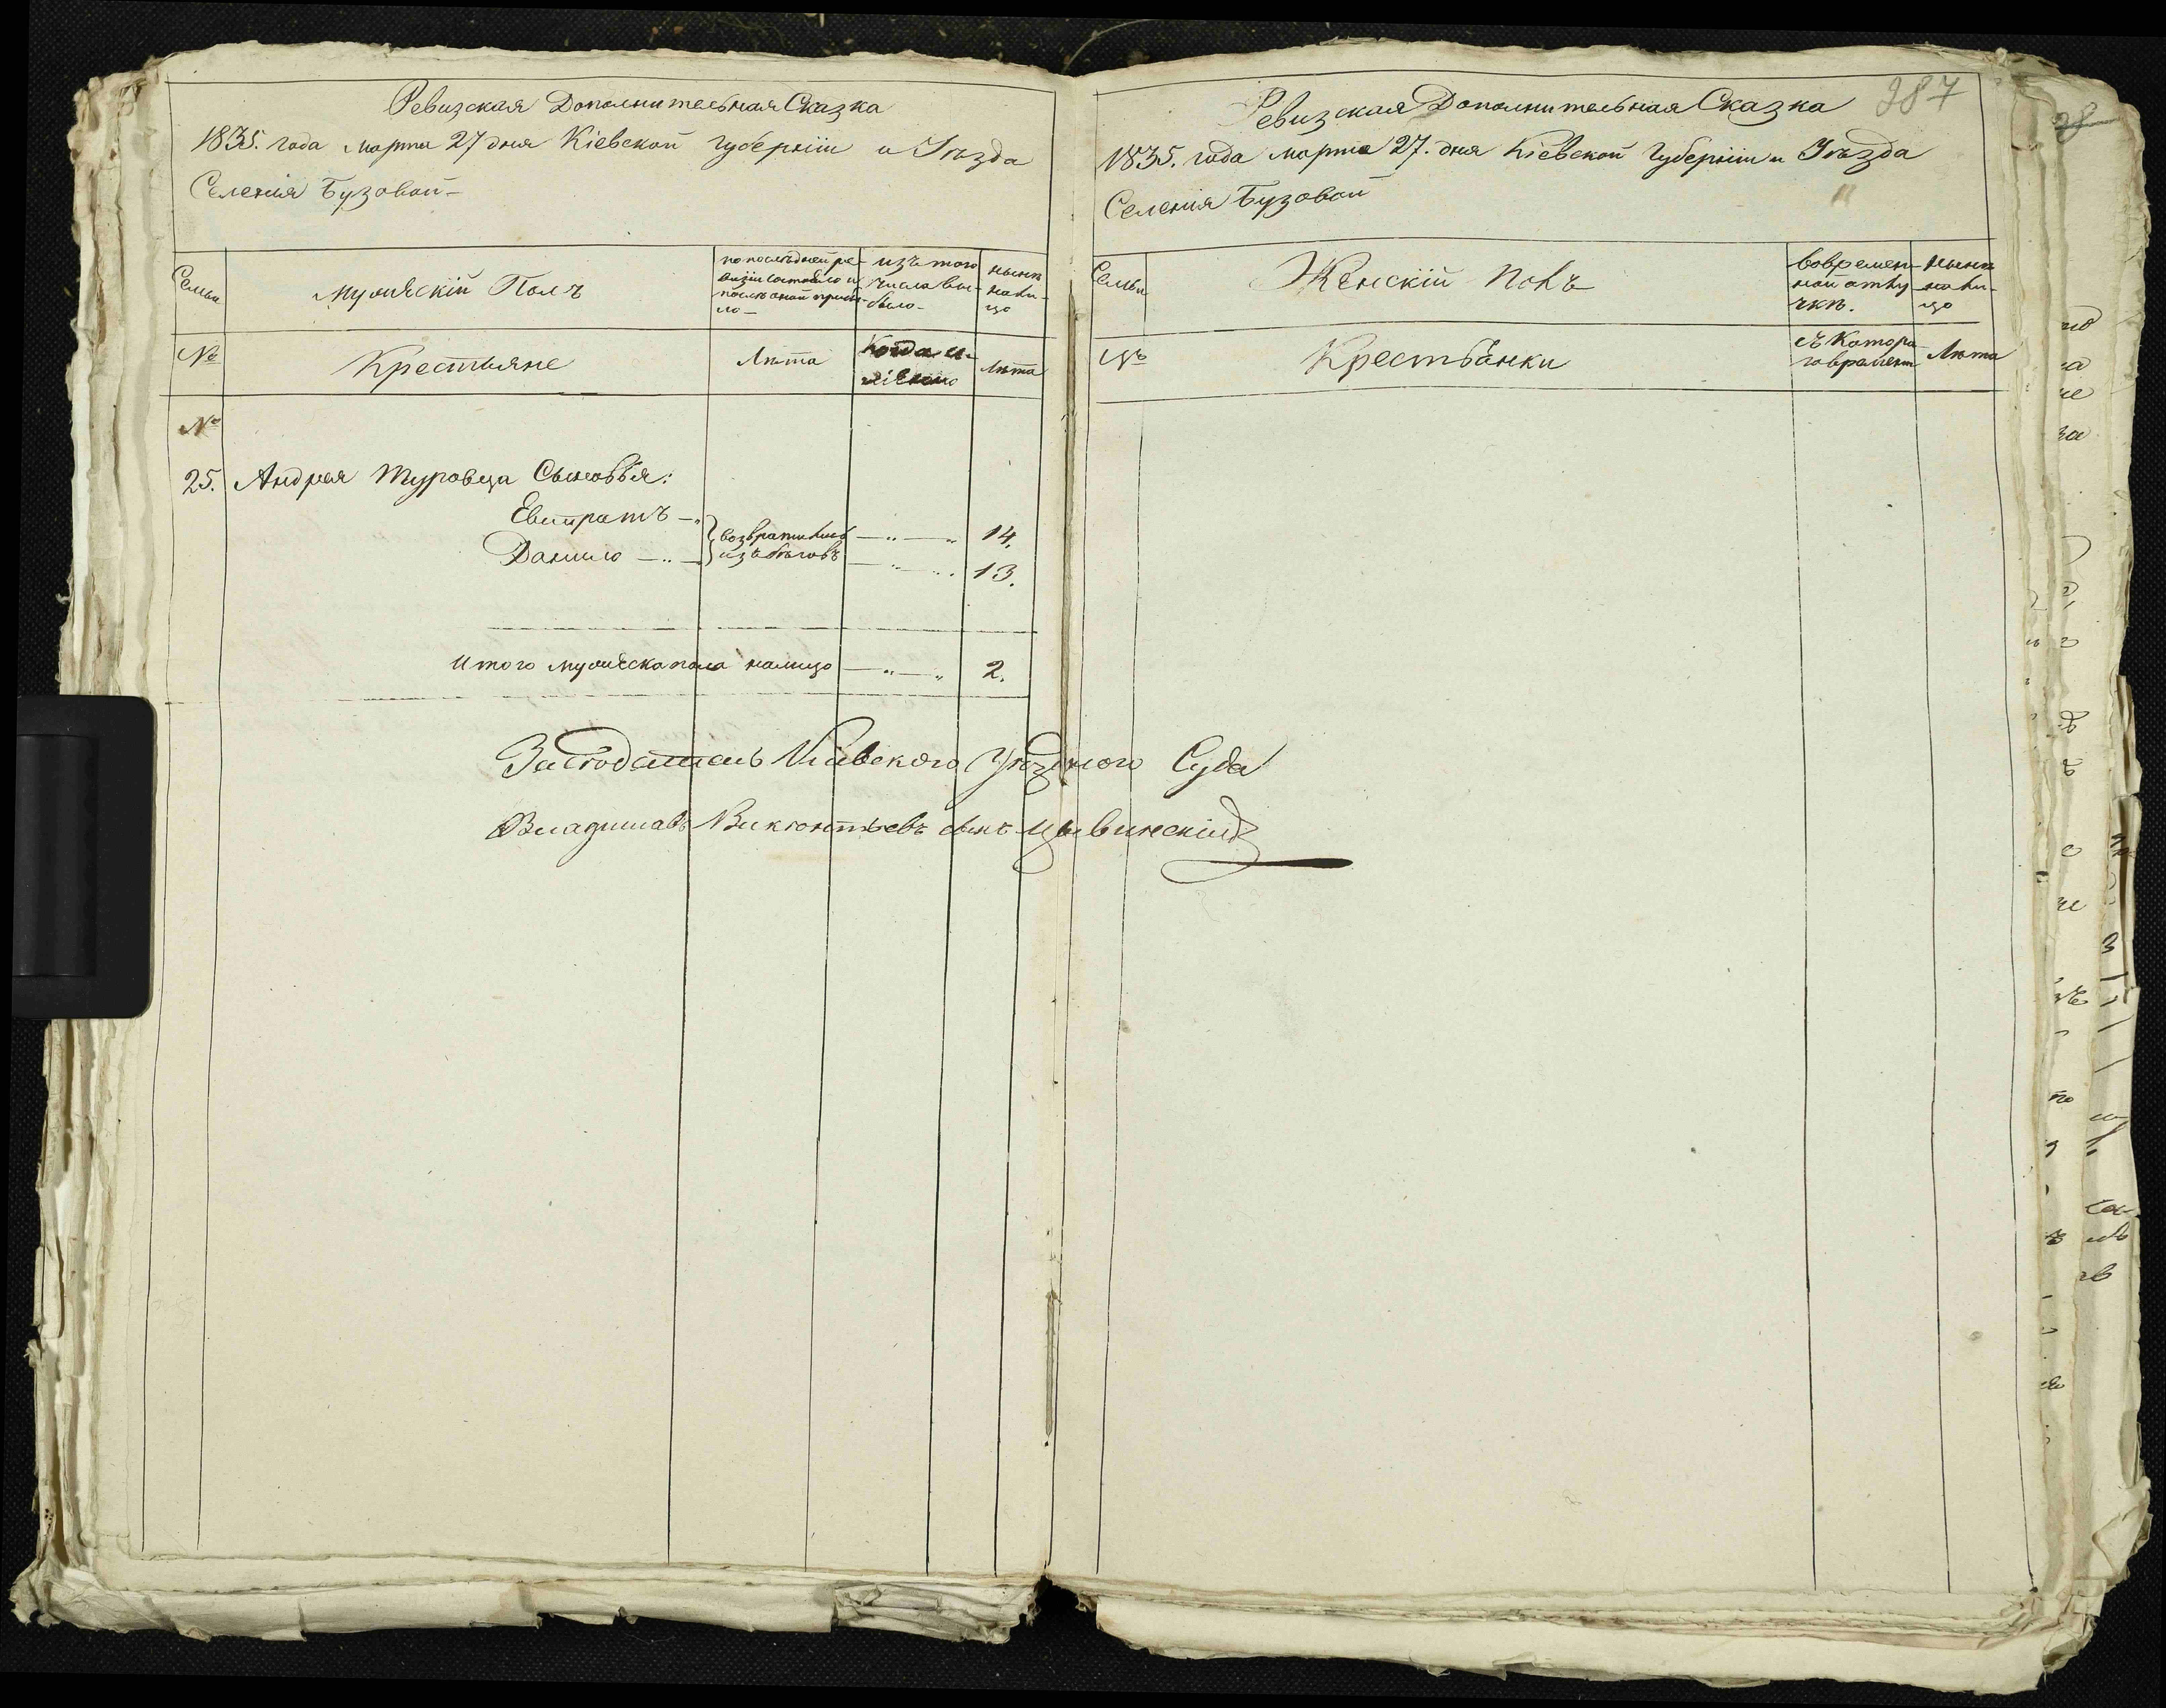 Ревизская Дополнительная Сказка
1835. года марта 27 дня Кіевской губерніи и Уѣзда
Селенія Бузовой
Семьи
Мужескій Полъ
по послѣдней ре-
визіи состояло и
послѣ оной прибы-
ло
изъ того
числа вы-
было
нынѣ
на ли-
цо
№
Крестьяне
Лѣта
Когда и-
Лѣта
№
25. Андрея Туровца Сыновья:
Евстратъ
Данило
возвратились
изъ бѣговъ
14.
13.
Итого мужеска пола налицо 2.
Заседатель Кіевского Уѣздного Суда
Владиславъ Викентьевъ сынъ Цывинскій
387
Ревизская Дополнительная Сказка
1835. года марта 27. дня Кіевской Губерніи и Уѣзда
Селенія Бузовой
Семьи
Женскій Полъ
во времен-
ной отлу-
чкѣ.
Нынѣ
на ли-
цо
№
Крестьянки
съ Котора
го времени
Лѣта